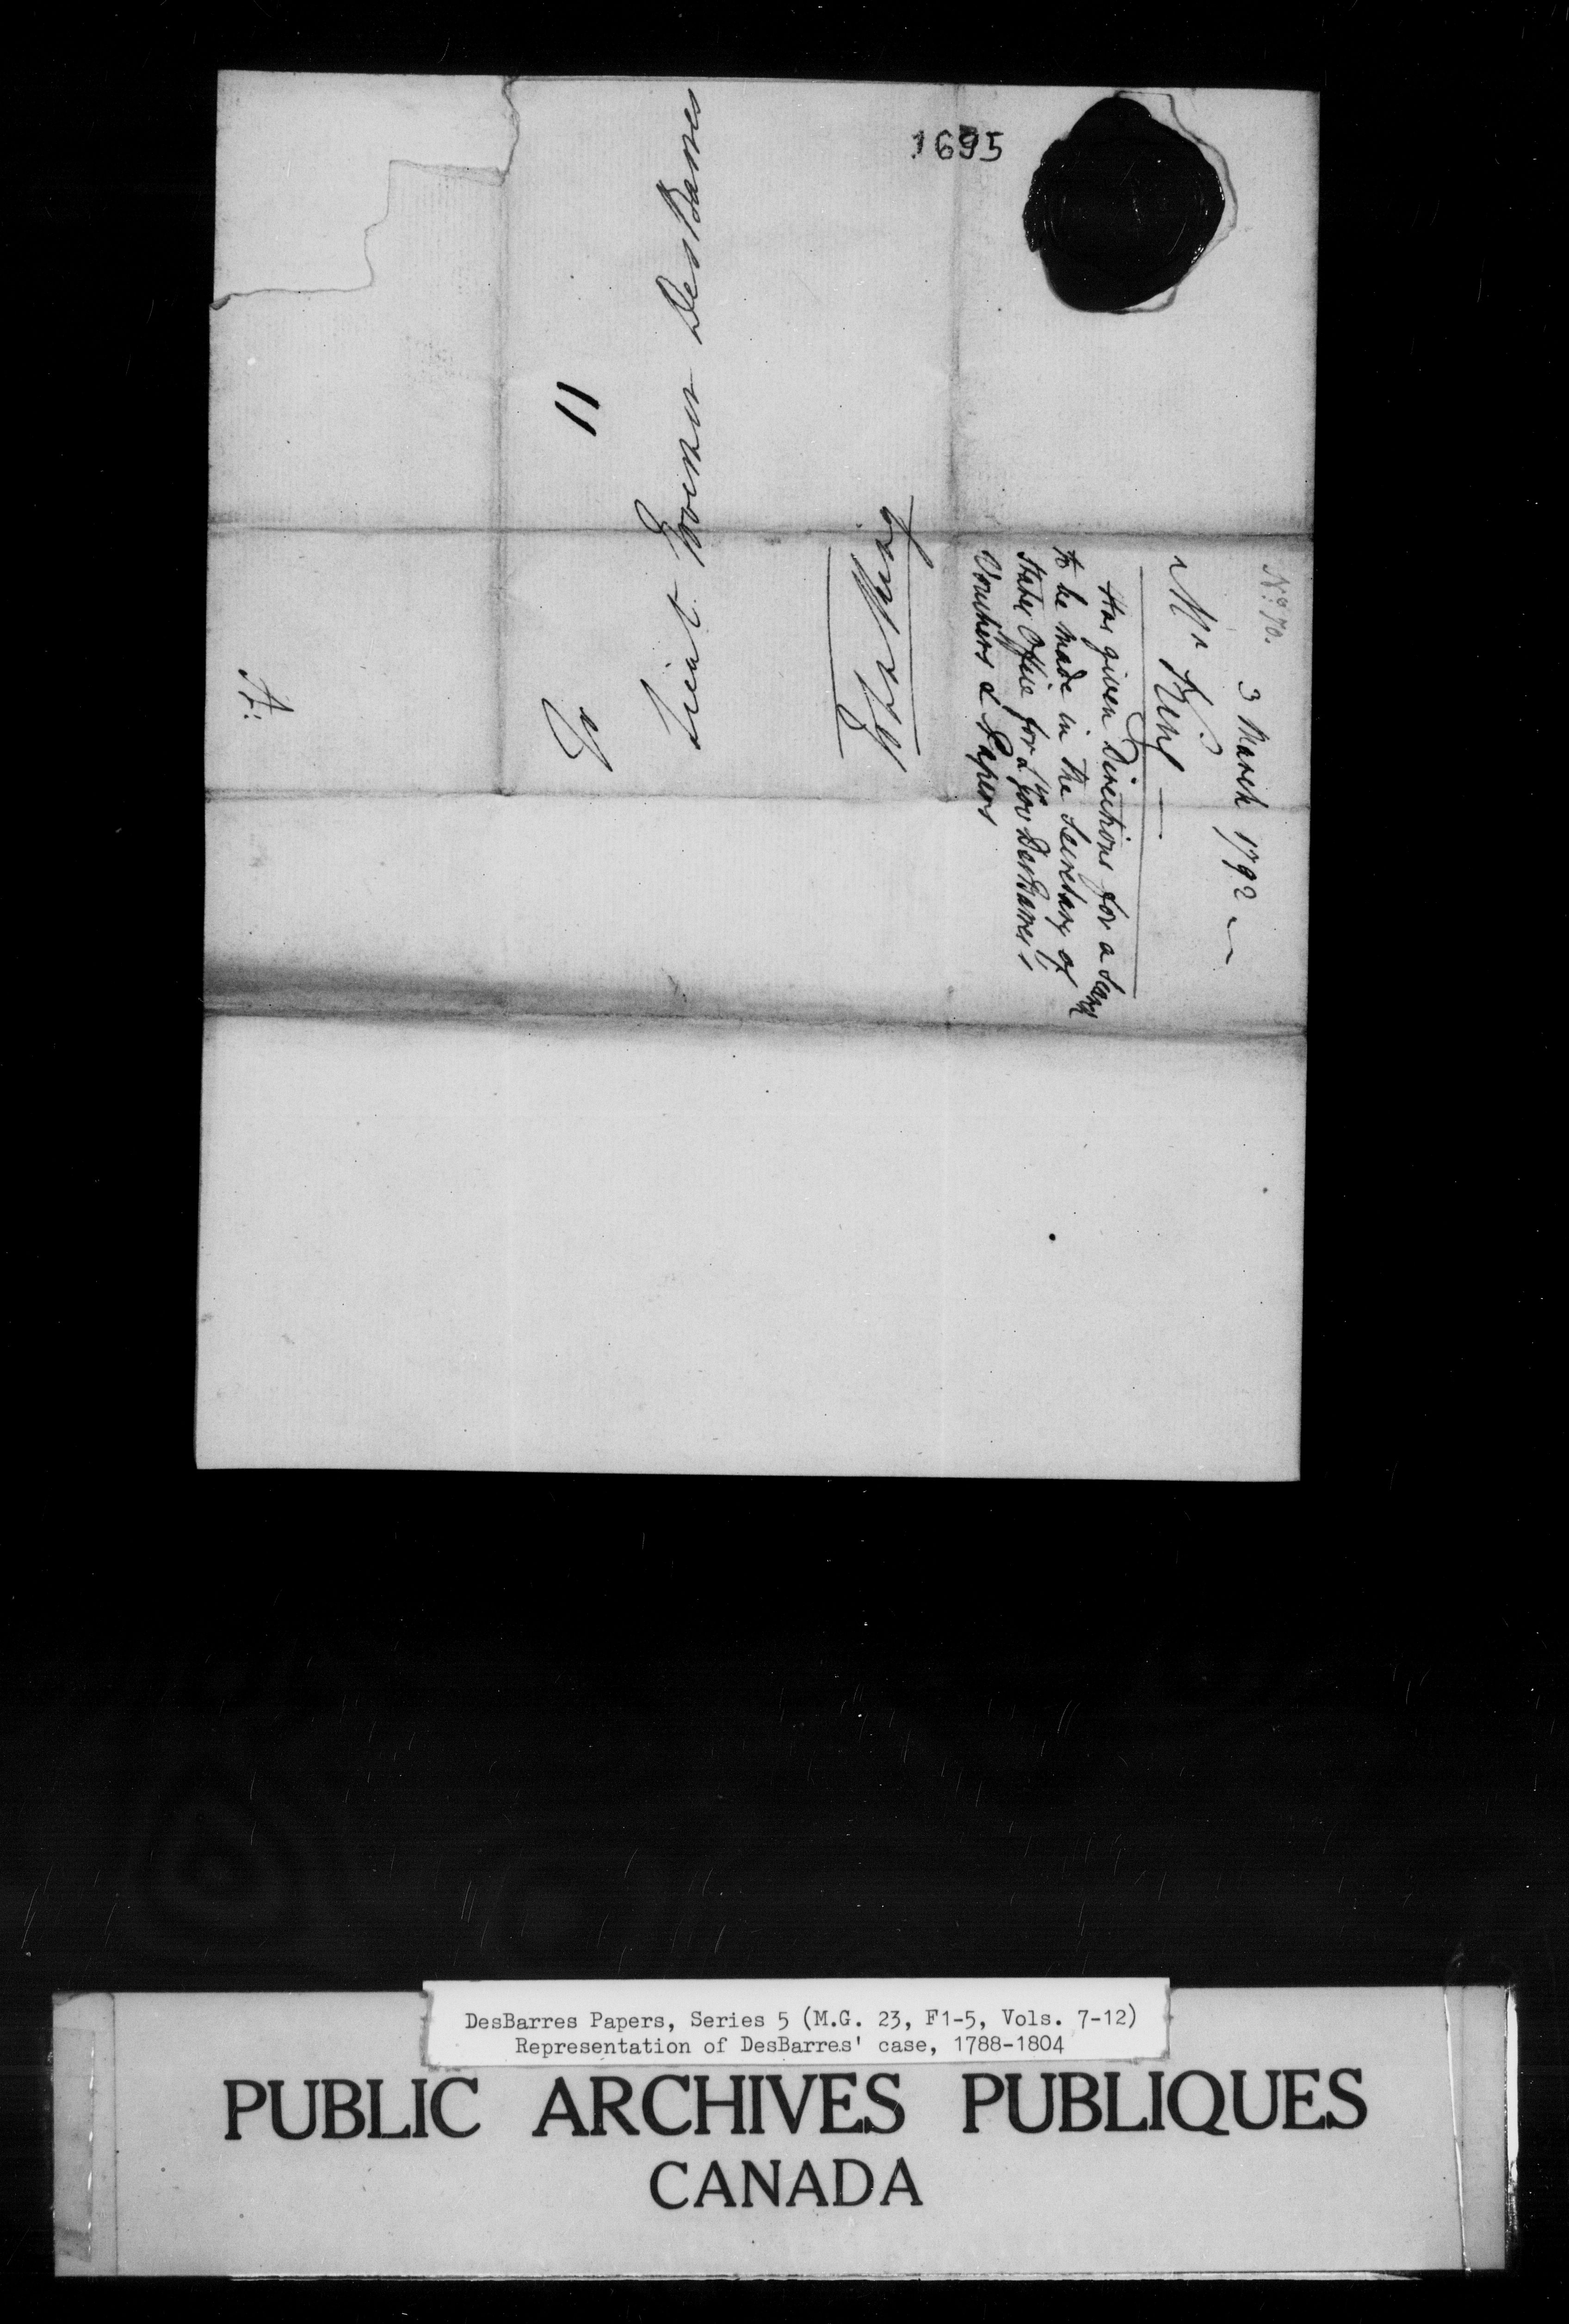 1695
N.º 70.
3 March 1792
Mr King
Has given Directions for a Search
to be made in the Secretary of
State's Office for Lt Gov DesBarres's
Vouchers & Papers
11
To
Lieut. Governor DesBarres
DesBarres Papers, Series 5 (M.G. 23, F1-5, Vols. 7-12)
Representation of DesBarres' case, 1788-1804
PUBLIC ARCHIVES PUBLIQUES
CANADA